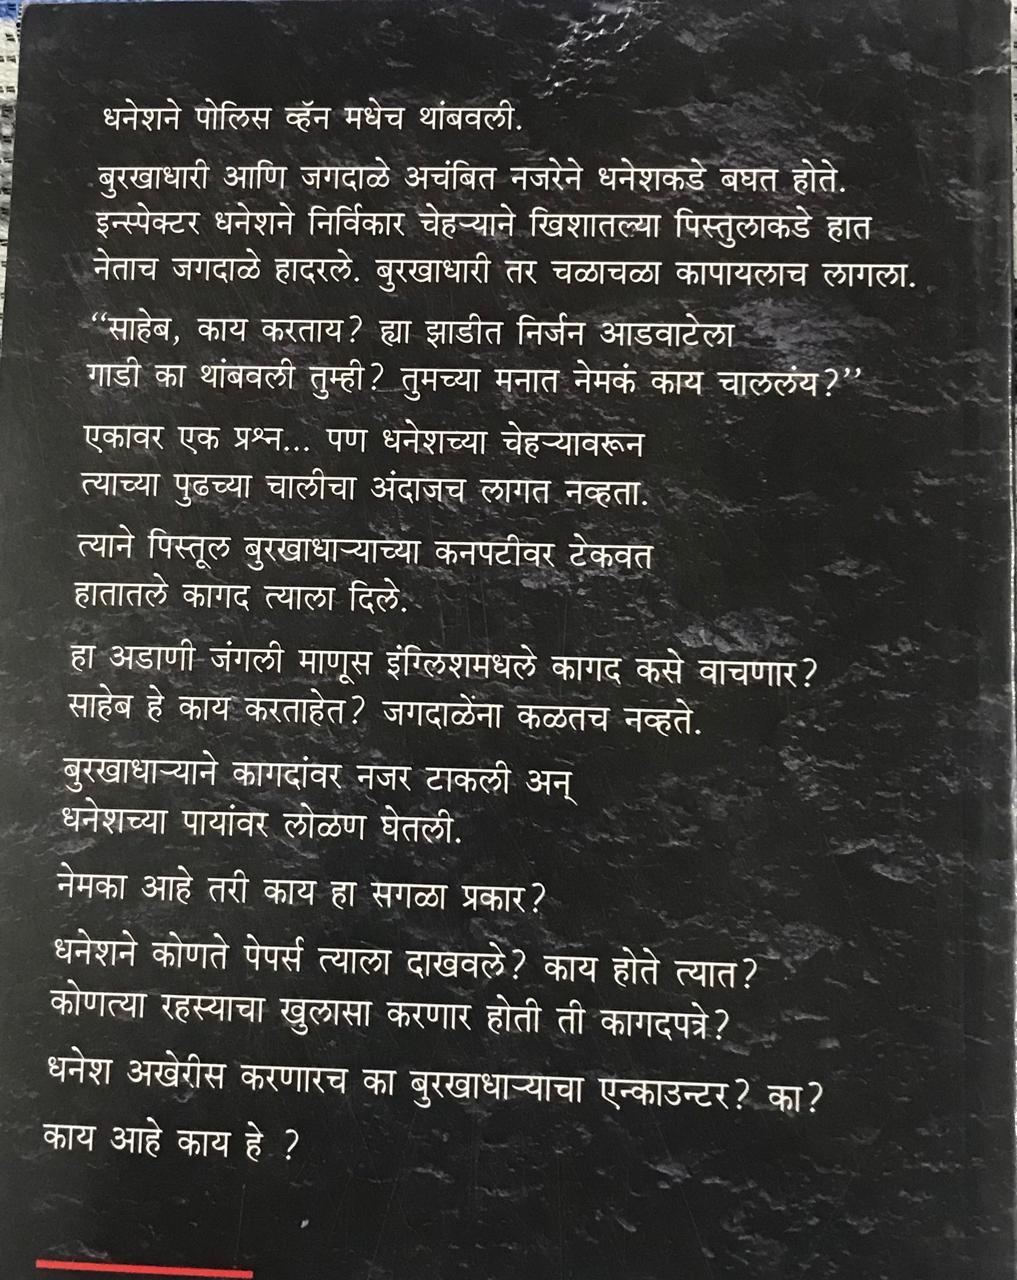 धनेशने पोलिस व्हॅन मधेच थांबवली.
बुरखाधारी आणि जगदाळे अचंबित नजरेने धनेशकडे बघत होते.
इन्स्पेक्टर धनेशने निर्विकार चेहऱ्याने खिशातल्या पिस्तुलाकडे हात
नेताच जगदाळे हादरले. बुरखाधारी तर चळाचळा कापायलाच लागला.
“साहेब, काय करताय? ह्या झाडीत निर्जन आडवाटेला
गाडी का थांबवली तुम्ही? तुमच्या मनात नेमकं काय चाललंय?”
एकावर एक प्रश्न... पण धनेशच्या चेहऱ्यावरून
त्याच्या पुढच्या चालीचा अंदाजच लागत नव्हता.
त्याने पिस्तूल बुरखाधाऱ्याच्या कनपटीवर टेकवत
हातातले कागद त्याला दिले.
हा अडाणी जंगली माणूस इंग्लिशमधले कागद कसे वाचणार?
साहेब हे काय करताहेत? जगदाळेंना कळतच नव्हते.
बुरखाधाऱ्याने कागदांवर नजर टाकली अन्
धनेशच्या पायांवर लोळण घेतली.
नेमका आहे तरी काय हा सगळा प्रकार?
धनेशने कोणते पेपर्स त्याला दाखवले? काय होते त्यात?
कोणत्या रहस्याचा खुलासा करणार होती ती कागदपत्रे?
धनेश अखेरीस करणारच का बुरखाधाऱ्याचा एन्काउन्टर? का?
काय आहे काय हे ?